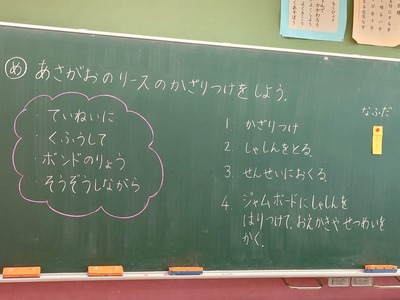 め あさがおのリースのかざりつけをしよう。
・ていねいに
・くふうして
・ボンドのりょう
・そうぞうしながら
1. かざりつけ
2. しゃしんをとる。
3. せんせいにおくる。
4. ジャムボードにしゃしんを
はりつけて、おえかきや せつめいを
かく。
なふだ